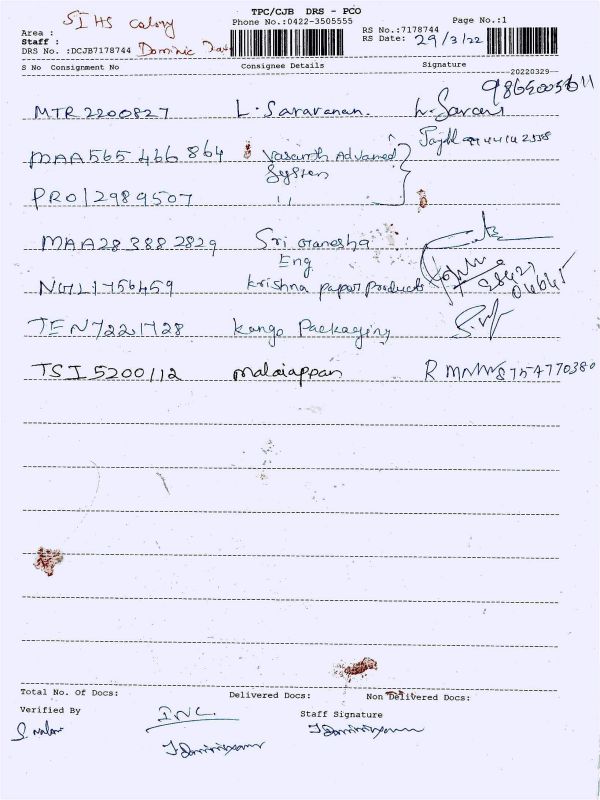 TPC/CJB DRS - PCO
SIHS colony
Phone No.:0422-3505555
Page No.:1
Area :
RS No.:7178744
Staff :
RS Date: 29/3/22
DRS No. :DCJB7178744 Dominic
S No Consignment No Consignee Details Signature
20220329
MTR 2200827 L. Saravanan. L. Saravanan
MAA565 466 864 Vasanth Advanced
System
PRO12989507 "
MAA28 388 2829 Sri Ganesha
Eng
NGL1756459 Krishna paper products
TEN7221728 Kango Packaging
TSI5200112 malaiappan 8754770380
Total No. Of Docs: Delivered Docs: Non Delivered Docs:
Verified By Staff Signature